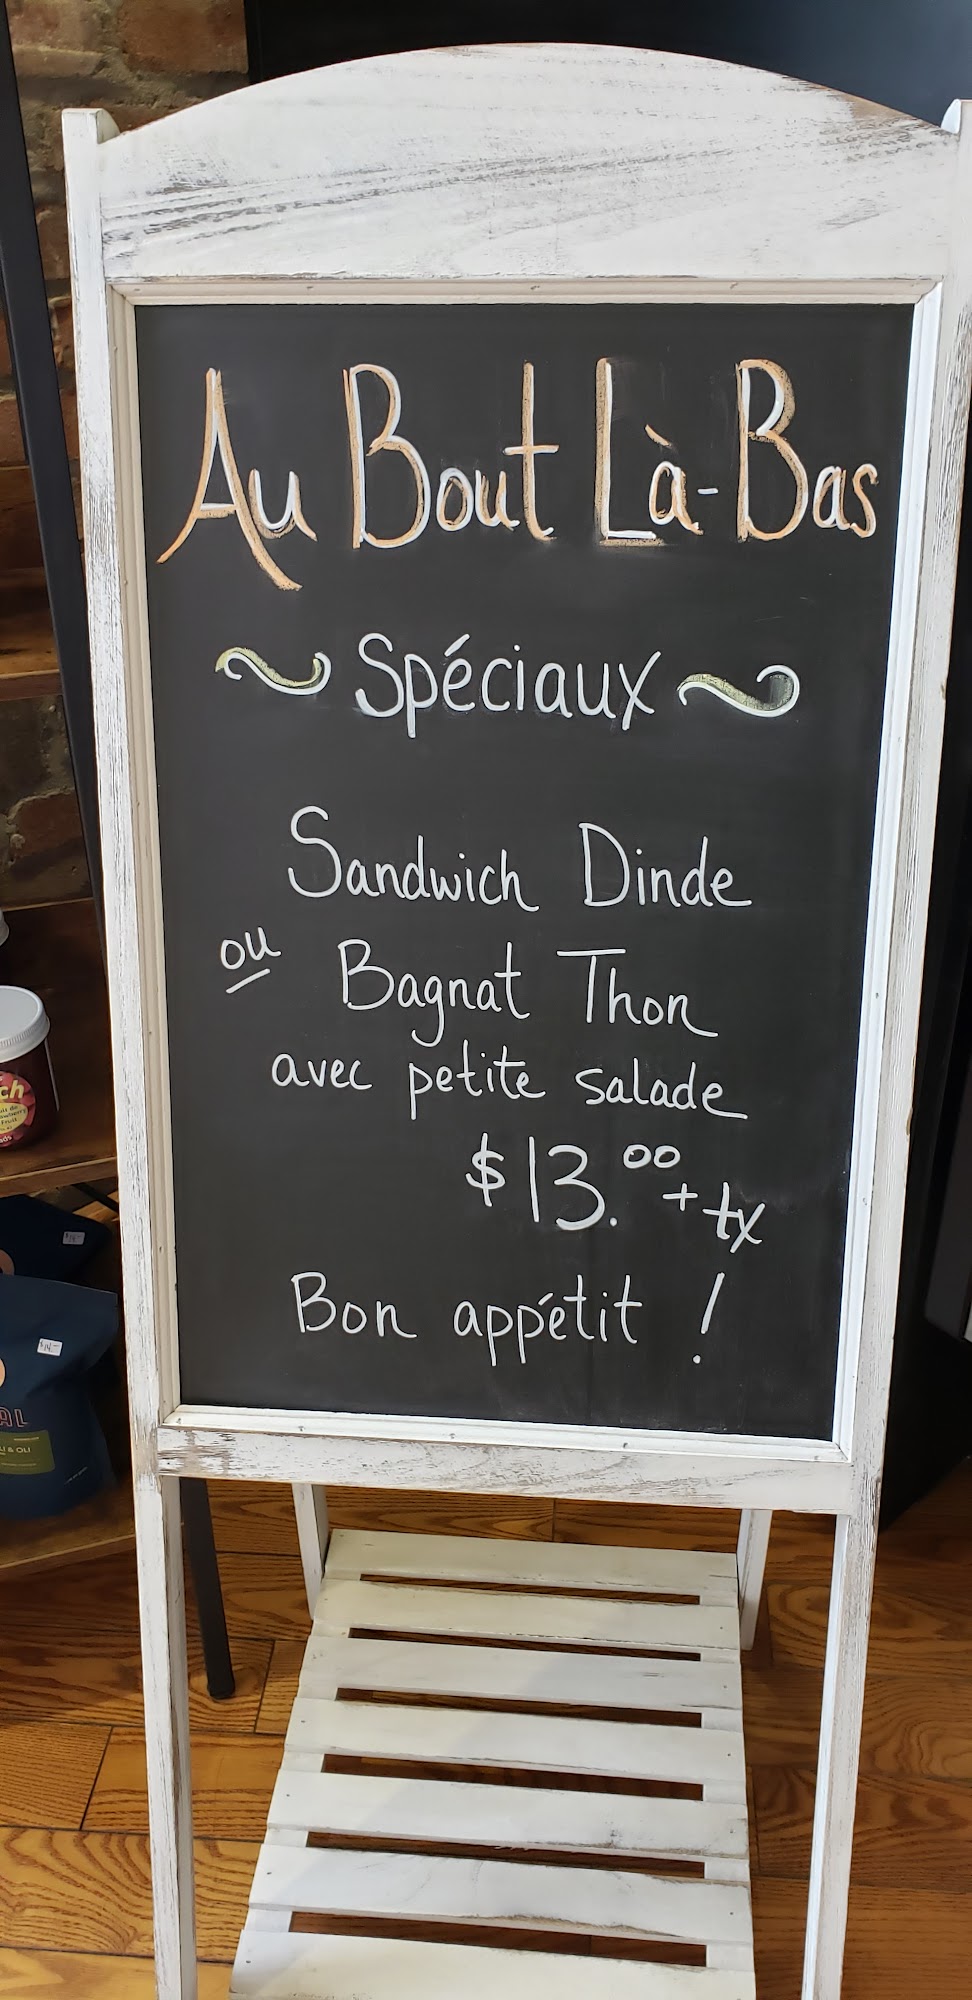 Au Bout Là-Bas
Spéciaux
Sandwich Dinde
ou Bagnat Thon
avec petite salade
$13.00 + tx
Bon appétit !
ch
$14.-
AL
LI & OLI